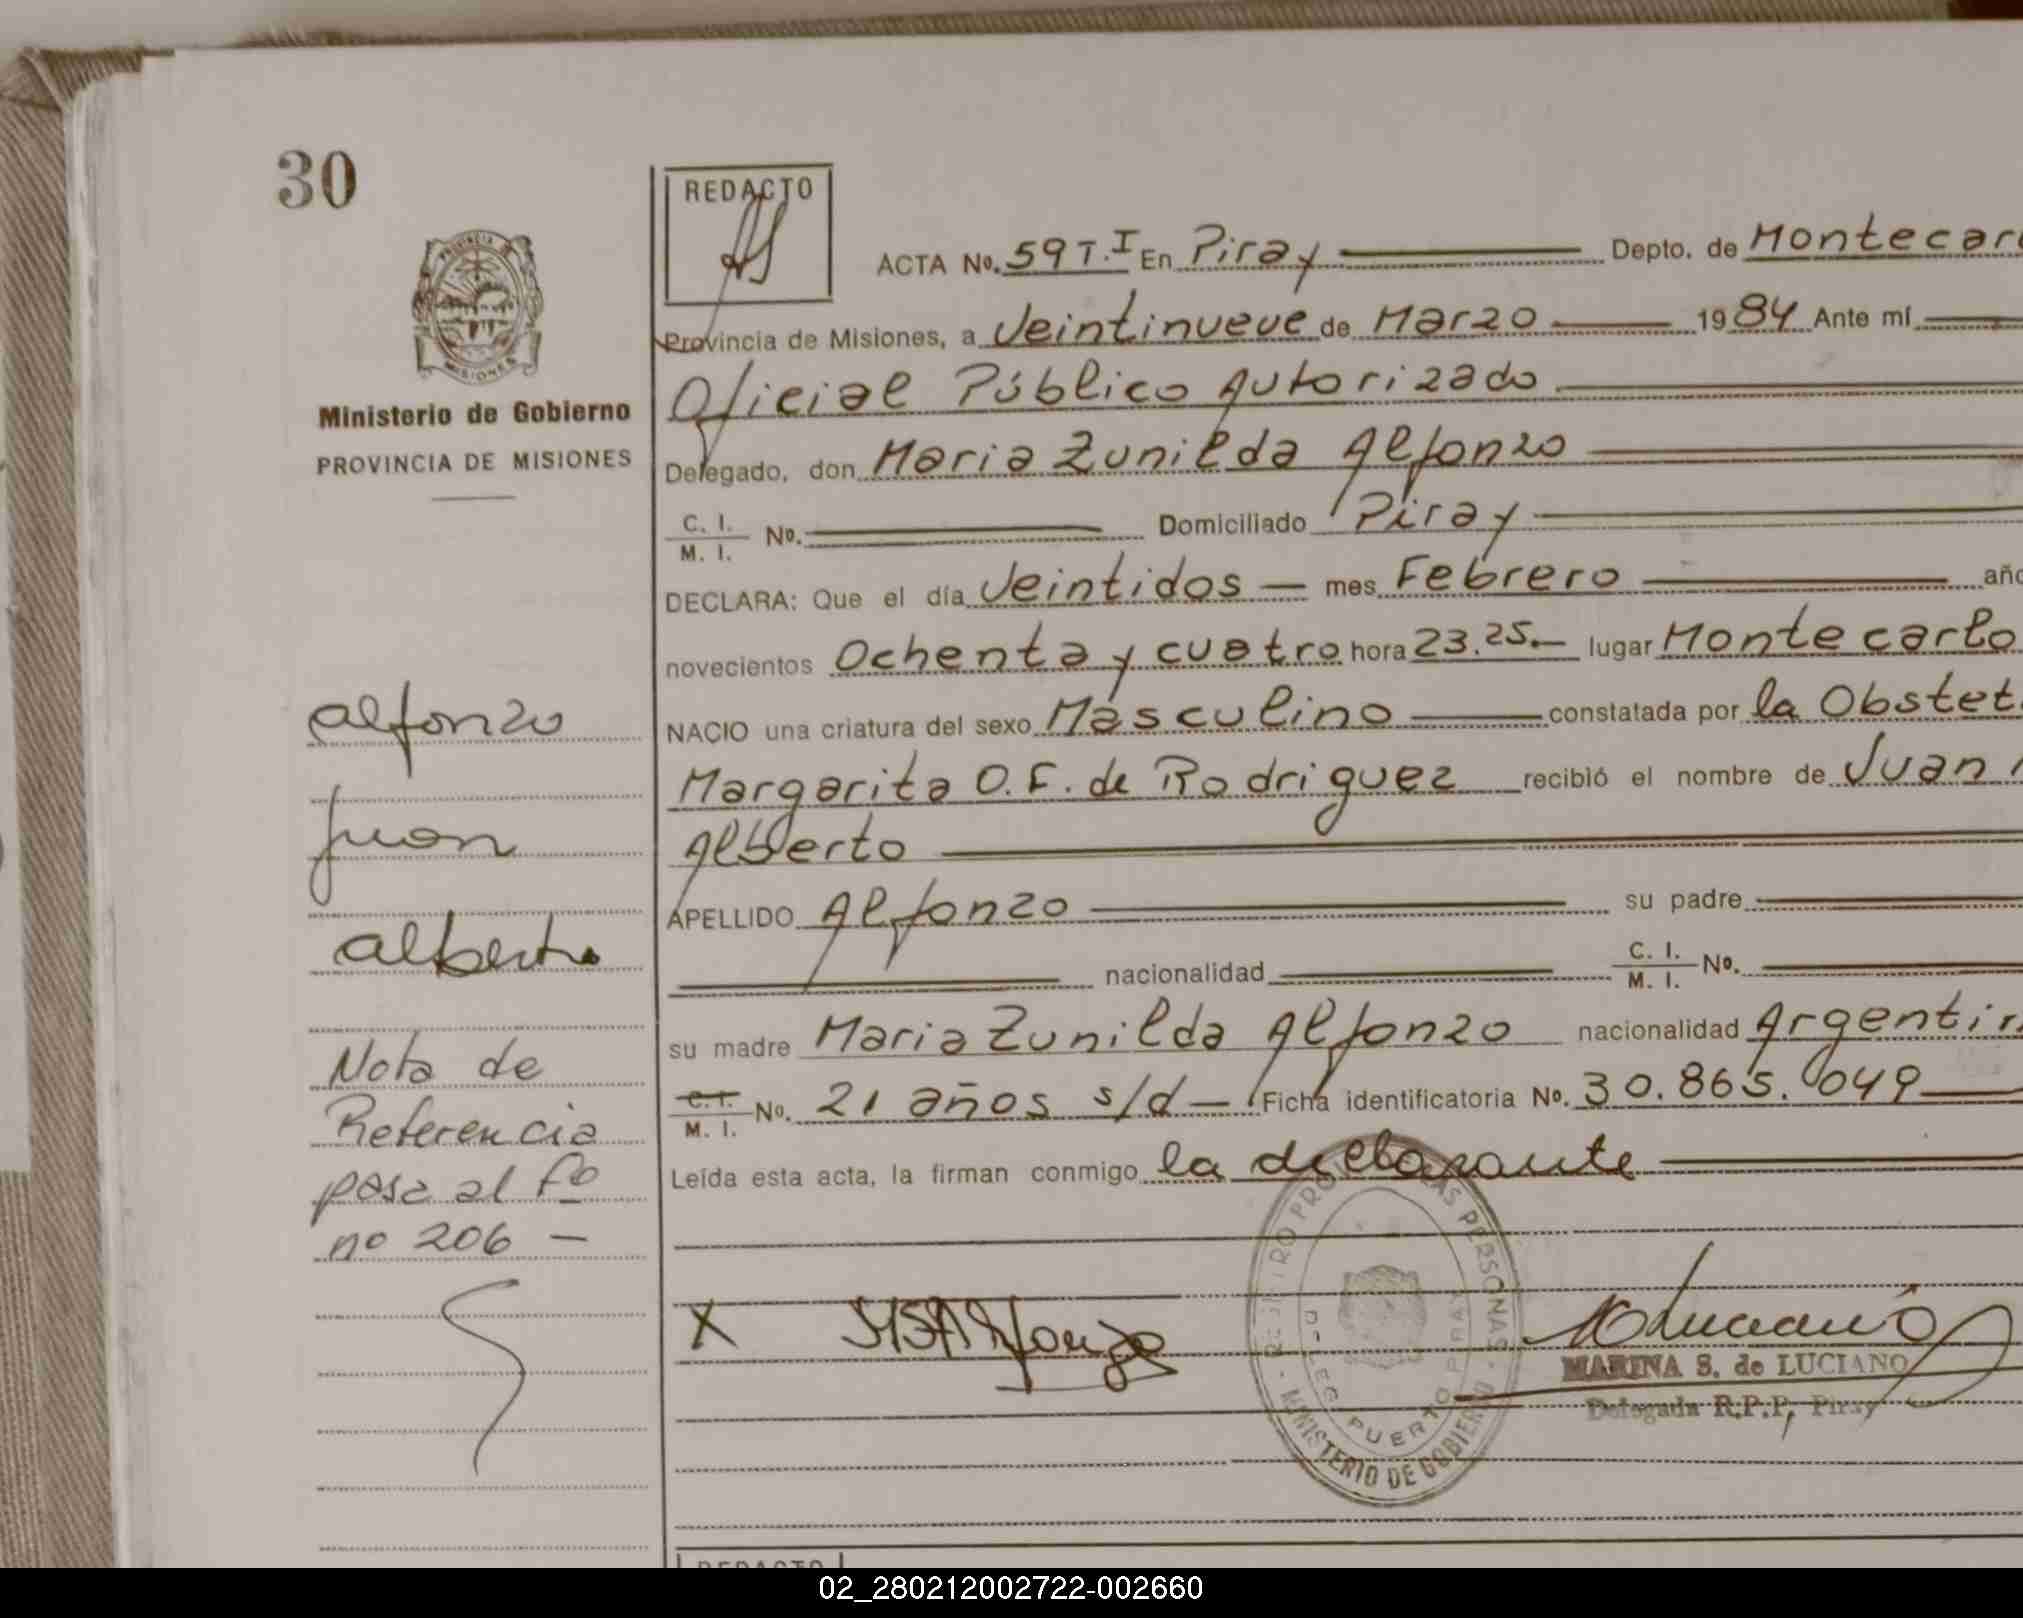 30
REDACTO
ACTA No. 59 T. I En Piray Depto. de Montecar
Provincia de Misiones, a Veintinueve de Marzo 1984 Ante mí
Oficial Público Autorizado
Delegado, don Maria Zunilda Alfonzo
C. I.
M. I. No. Domiciliado Piray
DECLARA: Que el día Veintidos — mes Febrero año
novecientos Ochenta y cuatro hora 23.25.— lugar Montecarlo
NACIO una criatura del sexo Masculino constatada por la Obstet.
Margarita O. F. de Rodriguez recibió el nombre de Juan
Alberto
APELLIDO Alfonzo su padre
nacionalidad C. I.
M. I. No.
su madre Maria Zunilda Alfonzo nacionalidad Argentin
C. I.
M. I. No. 21 años s/d — Ficha identificatoria No. 30.865.049
Leída esta acta, la firman conmigo la declarante
PROVINCIA DE
MISIONES
Ministerio de Gobierno
PROVINCIA DE MISIONES
alfonzo
Juan
alberto
Nota de
Referencia
pasa al fo
no 206 —
X Alfonzo
REGISTRO PROV. DE LAS PERSONAS
MINISTERIO DE GOBIERNO
DELEG. PUERTO PIRAY
MARINA S. de LUCIANO
Delegada R.P.P, Piray
REDACTO
02_280212002722-002660